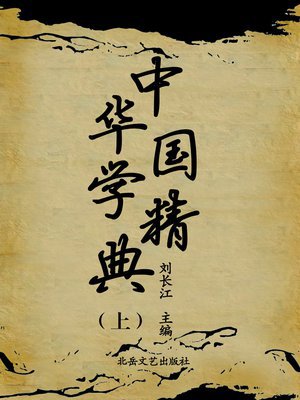 中国精
华学典
刘长江 主编
（上）
北岳文艺出版社